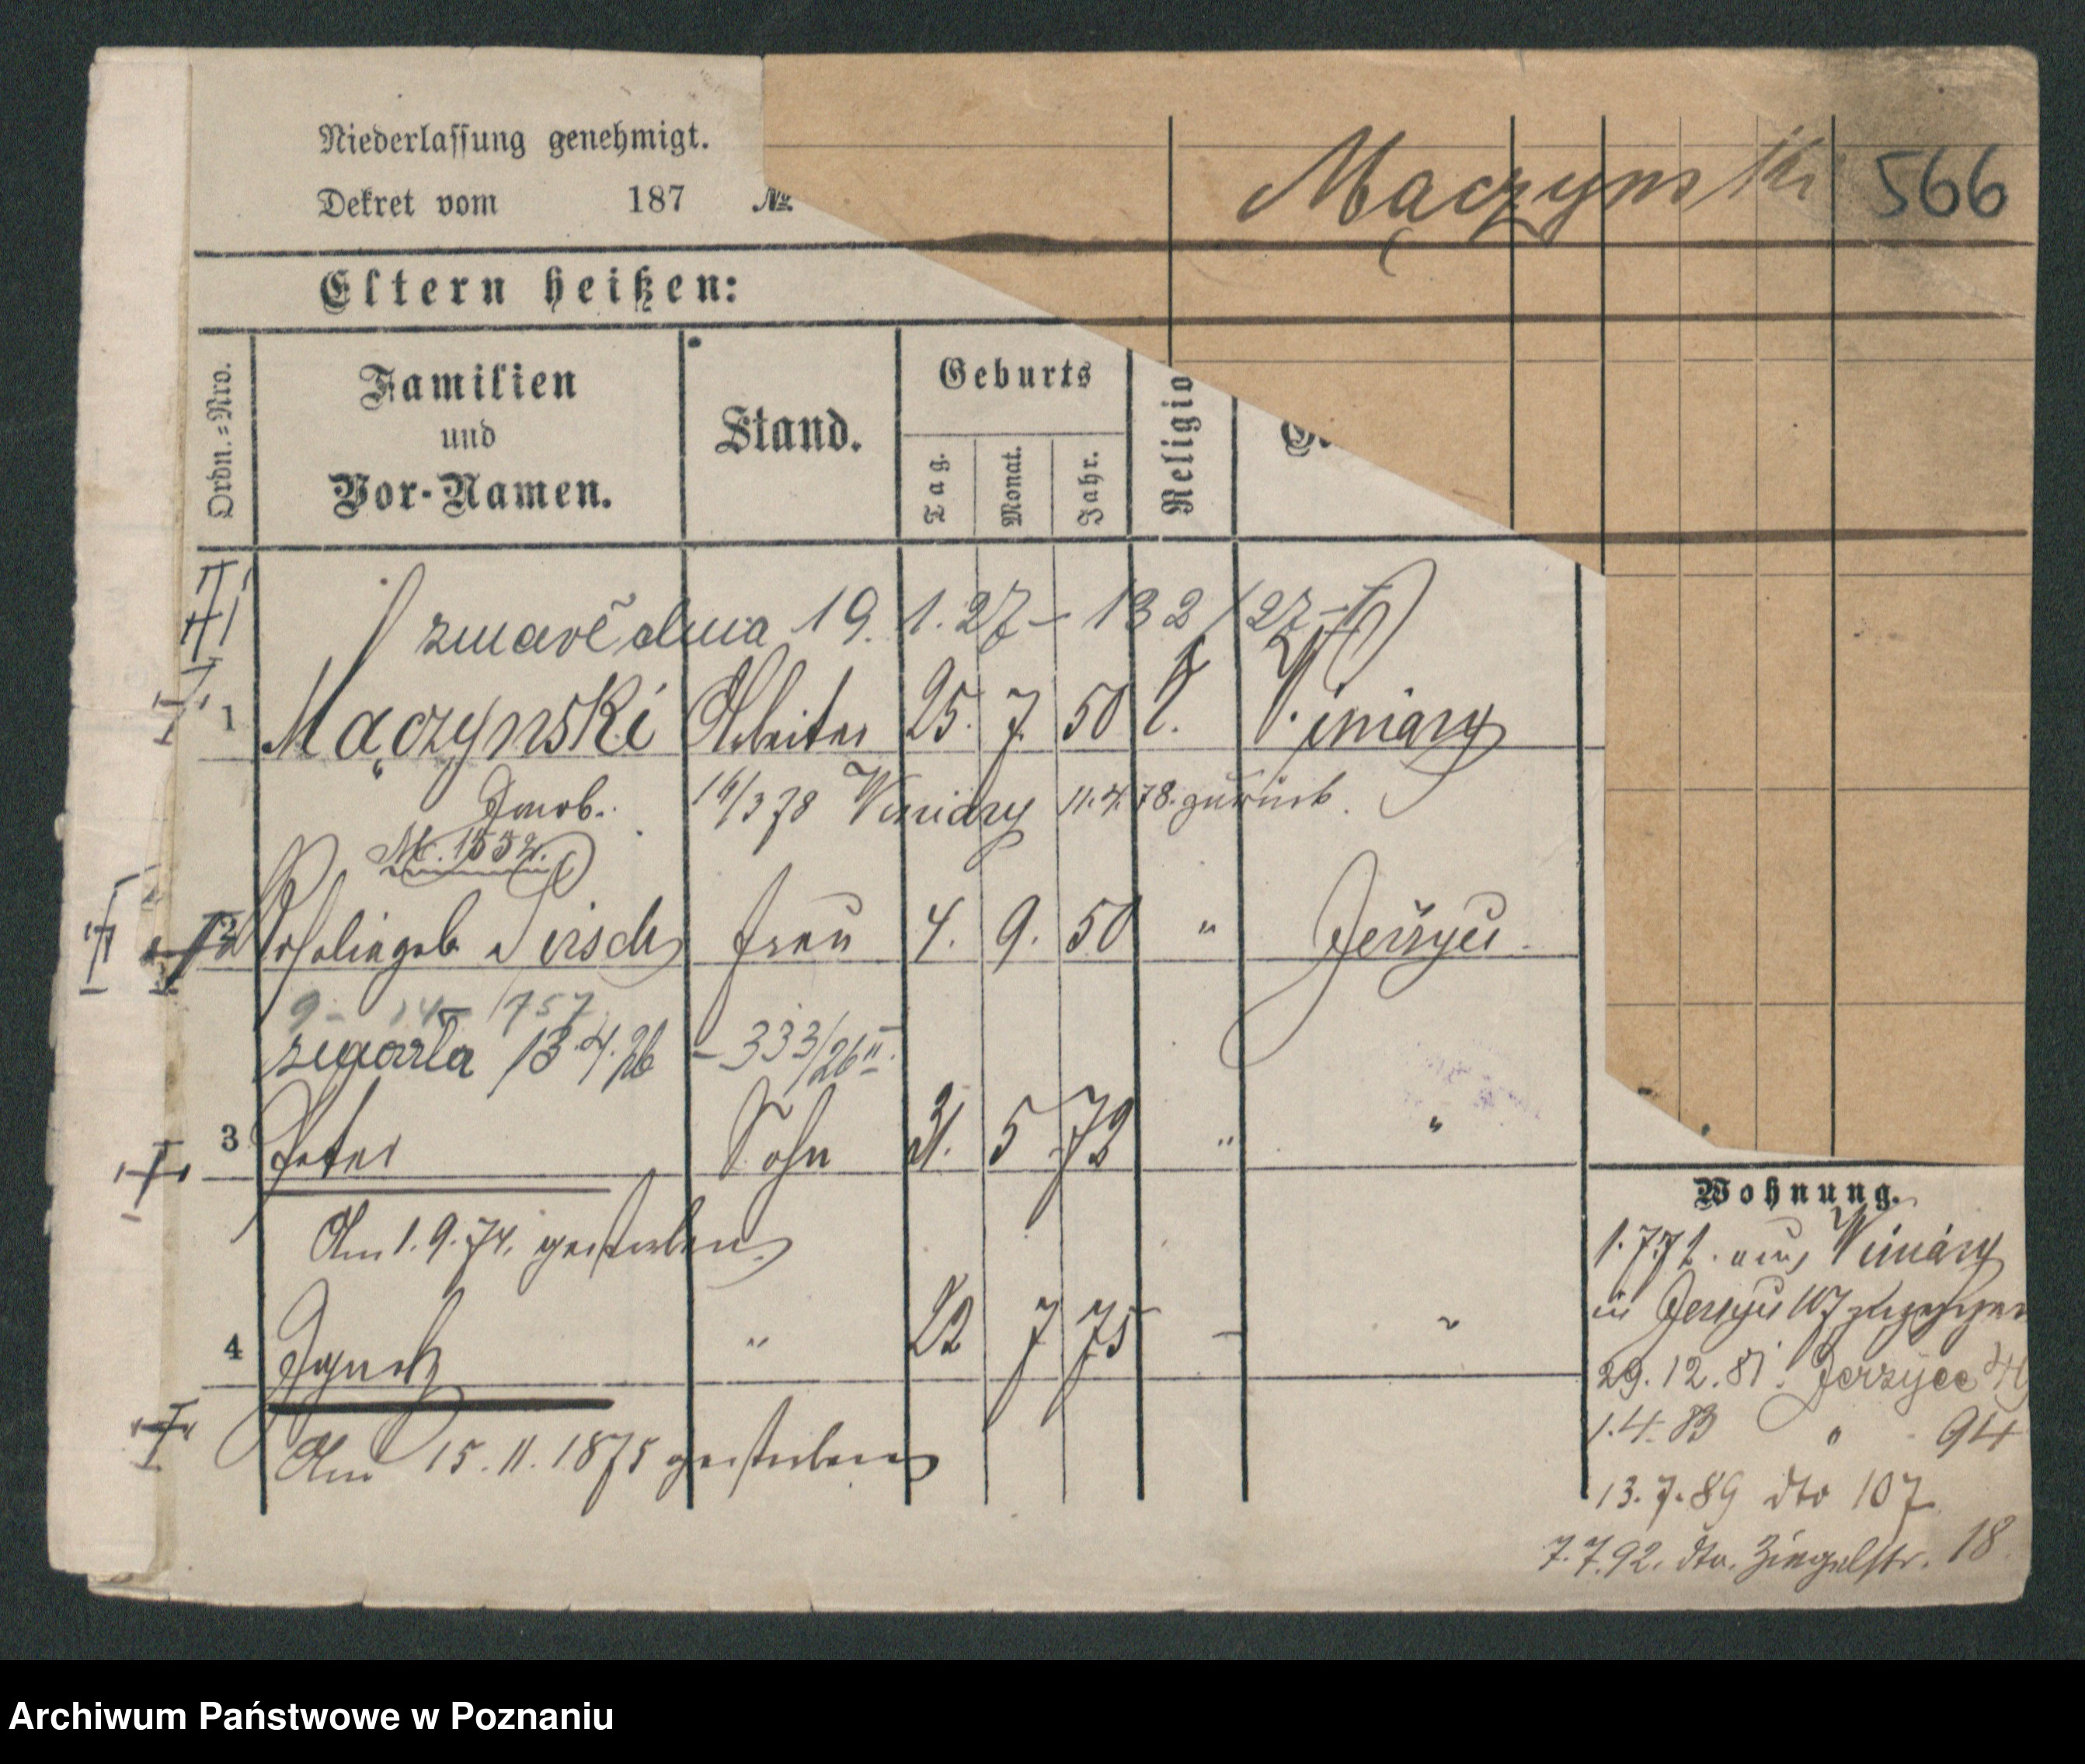 Niederlassung genehmigt.
Dekret vom 187 №
Mączynski 566
Eltern heißen:
Ordn.=Nro.
Familien
und
Vor-Namen.
Stand.
Geburts
Tag.
Monat.
Jahr.
Religio
zmarł dnia 19. 1. 27 – 132/27
1 Mączynski Arbeiter 25. 7. 50 Winiary
Jacob. 14/3 78 Winiary 11.4.78. zurück.
2 geb. Pirsch Frau 4. 9. 50 " Jerzyce.
zmarła 13.4.26 – 333/26 II.
3 Peter Sohn 31. 5 72 " "
Am 1. 9. 74. gestorben.
4 Ignatz " 22 7 75 – "
Am 15. 11. 1875 gestorben
Wohnung.
1.7.71. aus Winiary
in Jerzyce 107 zugezogen
29.12.81. Jerzyce
1.4.83 " 94
13.7.89 dto 107
7.7.92. dto. Ziegelstr. 18
Archiwum Państwowe w Poznaniu